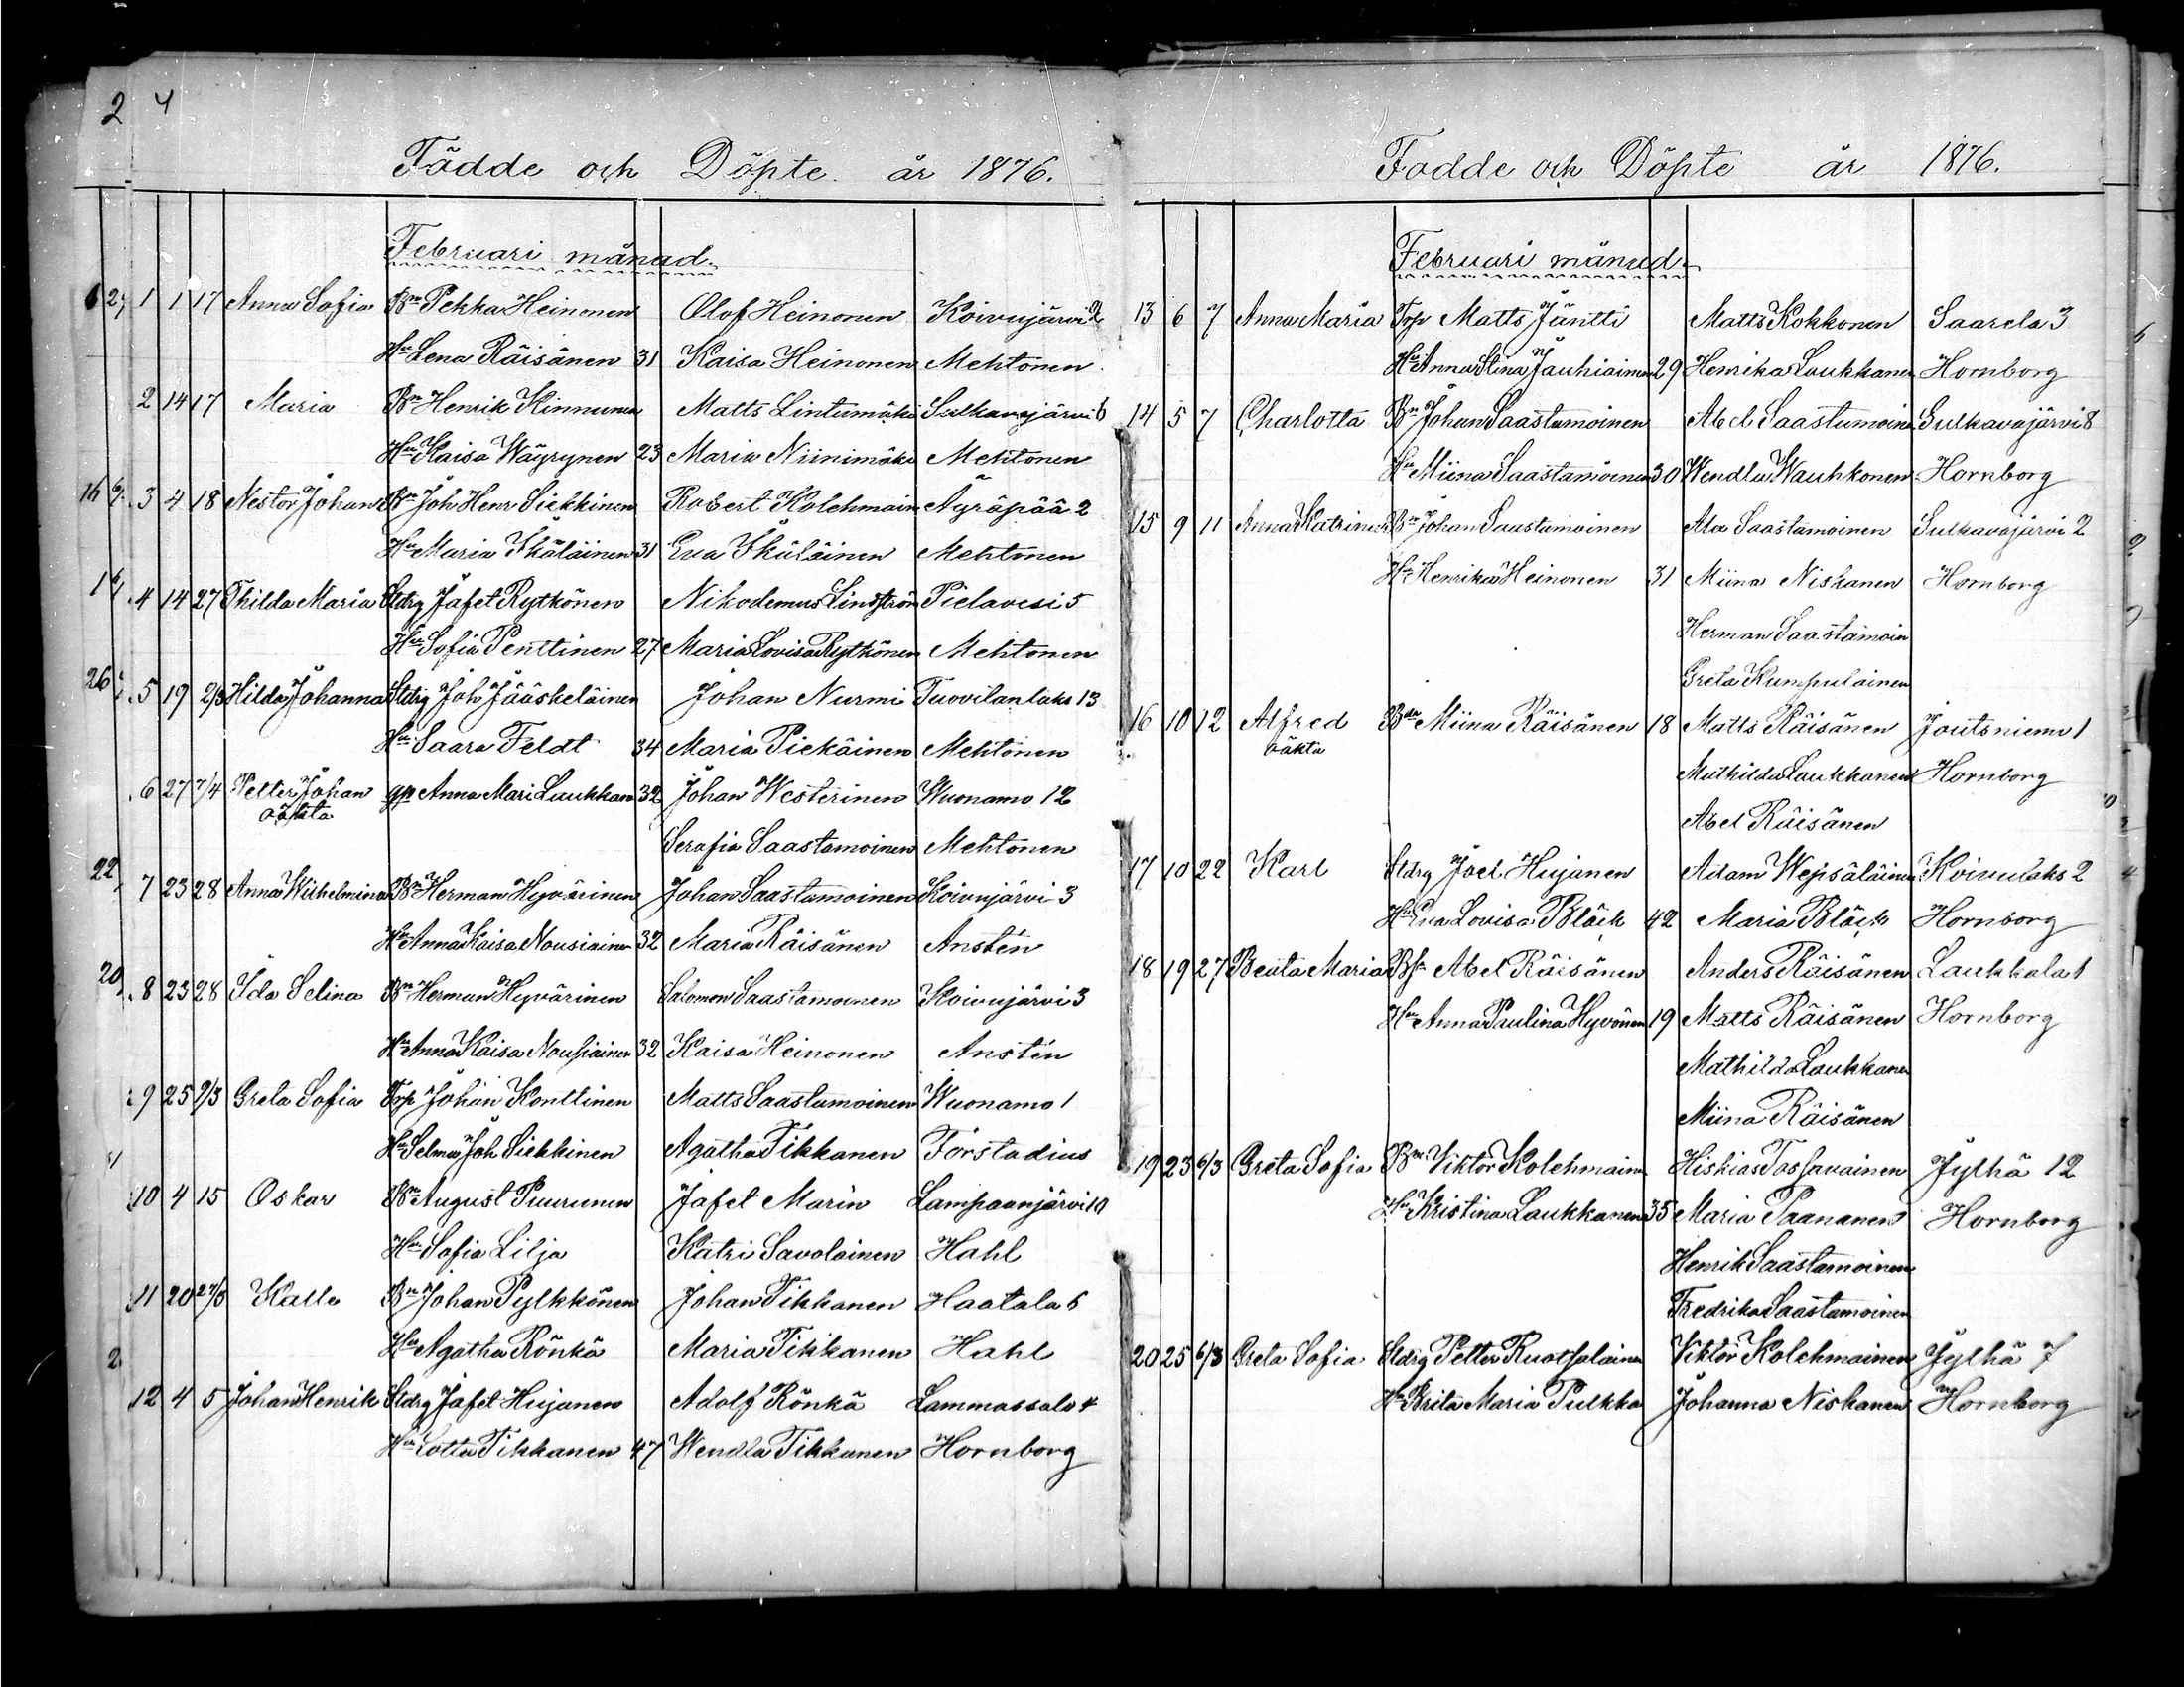 2 4
Fädde och Döpte. år 1876.
Februari månad.
1 1 17 Anna Sofia Bn Pekka Heinonen Olof Heinonen Koivujärvi 2
Hu Lena Räisänen 31 Kaisa Heinonen Mehtonen
2 14 17 Maria Bn Henrik Kinnunen Matts Lintumäki Sulkavajärvi 6
Hu Kaisa Wäyrynen 23 Maria Niinimäki Mehtonen
3 4 18 Nestor Johan Bn Joh Henr Siekkinen Robert Kolehmain Äyräpää 2
Hu Maria Ikäläinen 31 Eva Ikäläinen Mehtonen
4 14 27 Thilda Maria Stdrg Jafet Rytkönen Nikodemus Lindström Pielavesi 5
Hu Sofia Penttinen 27 Maria Lovisa Rytkönen Mehtonen
5 19 2/3 Hilda Johanna Stdrg Joh Jääskeläinen Johan Nurmi Tuovilanlaks 13
Hu Saara Feldt 34 Maria Piekäinen Mehtonen
6 27 7/4 Petter Johan gp Anna Mari Laukkan 32 Johan Westerinen Wuonamo 12
oäkta Serafia Saastamoinen Mehtonen
7 23 28 Anna Wilhelmina Bn Herman Hyvärinen Johan Saastamoinen Koivujärvi 3
Hu Anna Kaisa Nousiainen 32 Maria Räisänen Anstén
8 23 28 Ida Selina Bn Herman Hyvärinen Salomon Saastamoinen Koivujärvi 3
Hu Anna Kaisa Nousiainen 32 Kaisa Heinonen Anstén
9 25 9/3 Greta Sofia Trp Johan Konttinen Matts Saastamoinen Wuonamo 1
Hu Selma Joh Siekkinen Agatha Tikkanen Forstadius
10 4 15 Oskar Bn August Puurunen Jafet Marin Lampaanjärvi 10
Hu Sofia Lilja Katri Savolainen Hahl
11 20 27/3 Kalle Bn Johan Pylkkönen Johan Tikkanen Haatala 6
Hu Agatha Rönkä Maria Tikkanen Hahl
12 4 5 Johan Henrik Stdrg Jafet Hujanen Adolf Rönkä Lammassalo 4
Hu Lotta Tikkanen 47 Wendla Tikkanen Hornborg
Fodde och Döpte år 1876.
Februari månad.
13 6 7 Anna Maria Trp Matts Jäntti Matts Kokkonen Saarela 3
Hu Anna Stina Jauhiainen 29 Henrika Laukkanen Hornborg
14 5 7 Charlotta Bn Johan Saastamoinen Abel Saastamoine Sulkavajärvi 8
Hu Miina Saastamoinen 30 Wendla Wauhkonen Hornborg
15 9 11 Anna Katrina Bn Johan Saastamoinen Ala Saastamoinen Sulkavajärvi 2
Hu Henrika Heinonen 31 Miina Niskanen Hornborg
Herman Saastamoin
Greta Kumpulainen
16 10 12 Alfred Bdr Miina Räisänen 18 Matts Räisänen Joutsniemi 1
oäkta Mathilda Laukkanen Hornborg
Abel Räisänen
17 10 22 Karl Stdrg Joel Hujanen Adam Wepsäläinen Koivulaks 2
Hu Eva Lovisa Bläck 42 Maria Bläck Hornborg
18 19 27 Beata Maria Bs Abel Räisänen Anders Räisänen Laukkala 1
Hu Anna Paulina Hyvönen 19 Matts Räisänen Hornborg
Mathilda Laukkanen
Miina Räisänen
19 23 6/3 Greta Sofia Bn Viktor Kolehmain Hiskias Tossavainen Jylhä 12
Hu Kristina Laukkanen 35 Maria Paananen Hornborg
Henrik Saastamoinen
Fredrika Saastamoinen
20 25 6/3 Greta Sofia Stdrg Petter Ruotsalainen Viktor Kolehmainen Jylhä 7
Hu Brita Maria Pulkka Johanna Niskanen Hornborg